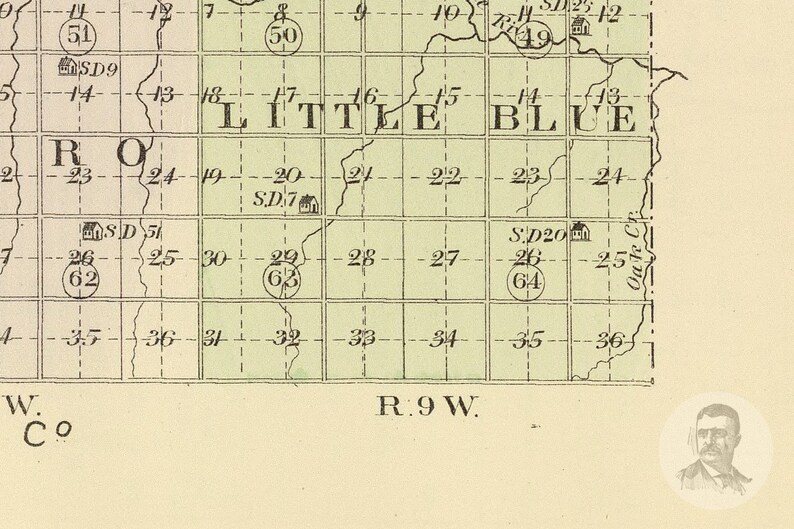 10 11 12 7 8 9 10 11 S.D.25 12
51 50 Riv 49
S.D 9
14 13 18 17 16 15 14 13
LITTLE BLUE
R O
23 24 19 20 21 22 23 24
S.D. 7
S.D 51 S.D 20
26 25 30 29 28 27 26 25
62 63 64
Oak Cr.
35 36 31 32 33 34 35 36
W. R. 9 W.
Co